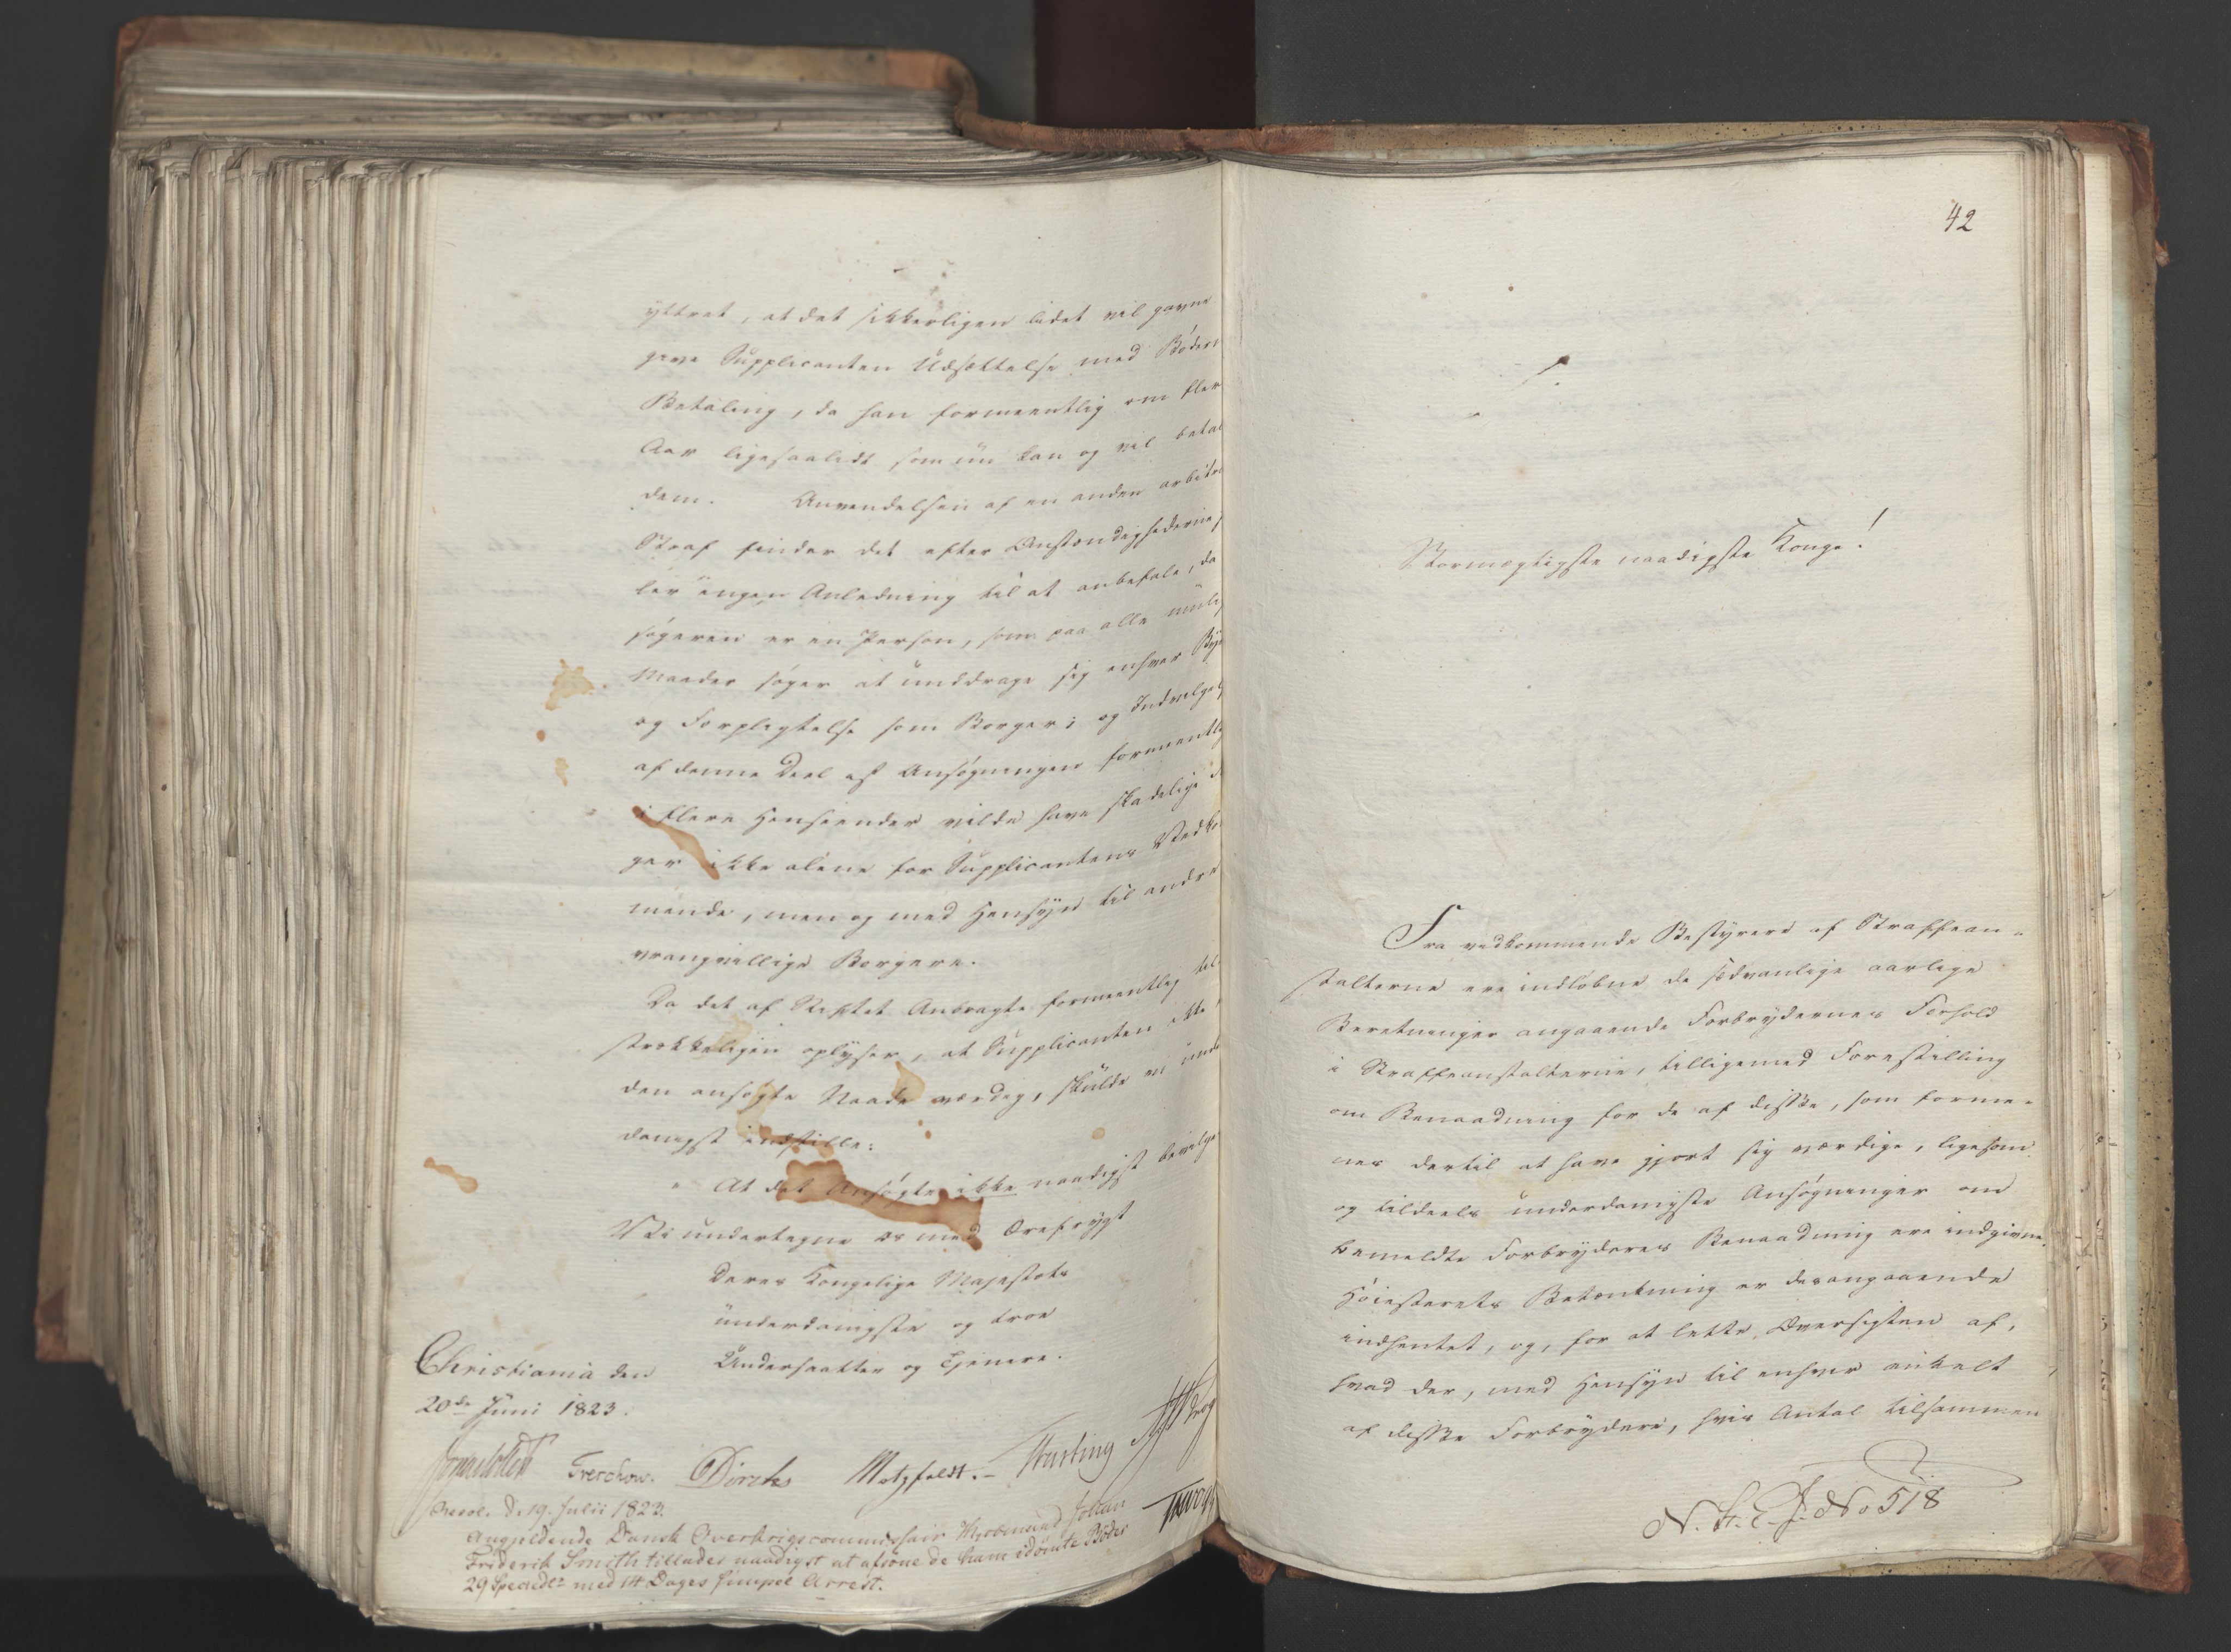 yttret, at det sikkerligen lidet vil gavne
give Supplicanten Udsættelse med Böders
Betaling, da han formeentlig om fler
Aar ligesaalidt som nu kan og vil betal
dem. Anvendelsen af en anden arbitr
Straf finder det efter Omstændighederne
ler ingen Anledning til at anbefale, da
søgeren er en Person, som paa alle muli
Maader søger at unddrage sig enhver Byr
og Forpligtelse som Borger; og Indvilgel
af denne Deel af Ansøgningen formeentli
i flere Henseender vilde have skadelige
ger ikke alene for Supplicantens Vedko
mende, men og med Hensyn til andre
vrangvillige Borgere.
Da det af Stiftet Anbragte formeentlig til
strækkeligen oplyser, at Supplicanten ikke
den ansøgte Naade værdig, skulde vi unde
danigst indstille:
" At det Ansøgte ikke naadigst bevilge
Vi undertegne os med Ærefrygt
Deres Kongelige Majestæts
underdanigste og troe
Undersaatter og Tjenere.
Christiania den
20de Juni 1823.
Treschow. Diriks Motzfeldt.
Resol. D. 19. Julii 1823.
Angjeldende Dansk Overkrigscommissair Johan
Friderik Smith tillades naadigst at afsone de ham idömte Böder
29 Speciedlr med 14 Dages simpel Arrest.
42
Stormægtigste naadigste Konge!
Fra vedkommende Bestyrere af Straffean-
stalterne ere indløbne de sædvanlige aarlige
Beretninger angaaende Forbrydernes Forhold
i Straffeanstalterne, tilligemed Forestilling
om Benaadning for de af disse, som forme-
nes dertil at have gjort sig værdige, ligesom
og tildeels underdanigste Ansøgninger om
bemeldte Forbryderes Benaadning ere indgivne.
Høiesterets Betænkning er desangaaende
indhentet, og, for at lette Oversigten af,
hvad der, med Hensyn til enhver enkelt
af disse Forbrydere, hvis Antal tilsammen
No 518